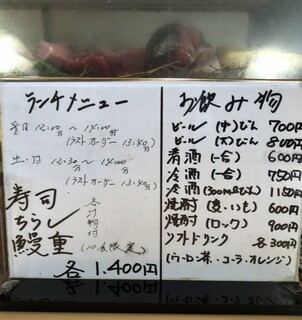 ランチメニュー
平日 12:00分 〜 14:00分
(ラストオーダー 13:40分)
土・日 12:30分 〜 14:00分
(ラストオーダー 13:40分)
寿司
ちらし
鰻重
各汁物付
(10食限定)
各 1.400円
お飲み物
ビール (中)びん 700円
ビール (大)びん 800円
清酒 (一合) 600円
冷酒 (一合) 750円
冷酒 (300mlびん) 1150円
焼酎 (麦・いも) 600円
焼酎 (ロック) 900円
ソフトドリンク 各300円
(ウーロン茶・コーラ・オレンジ)